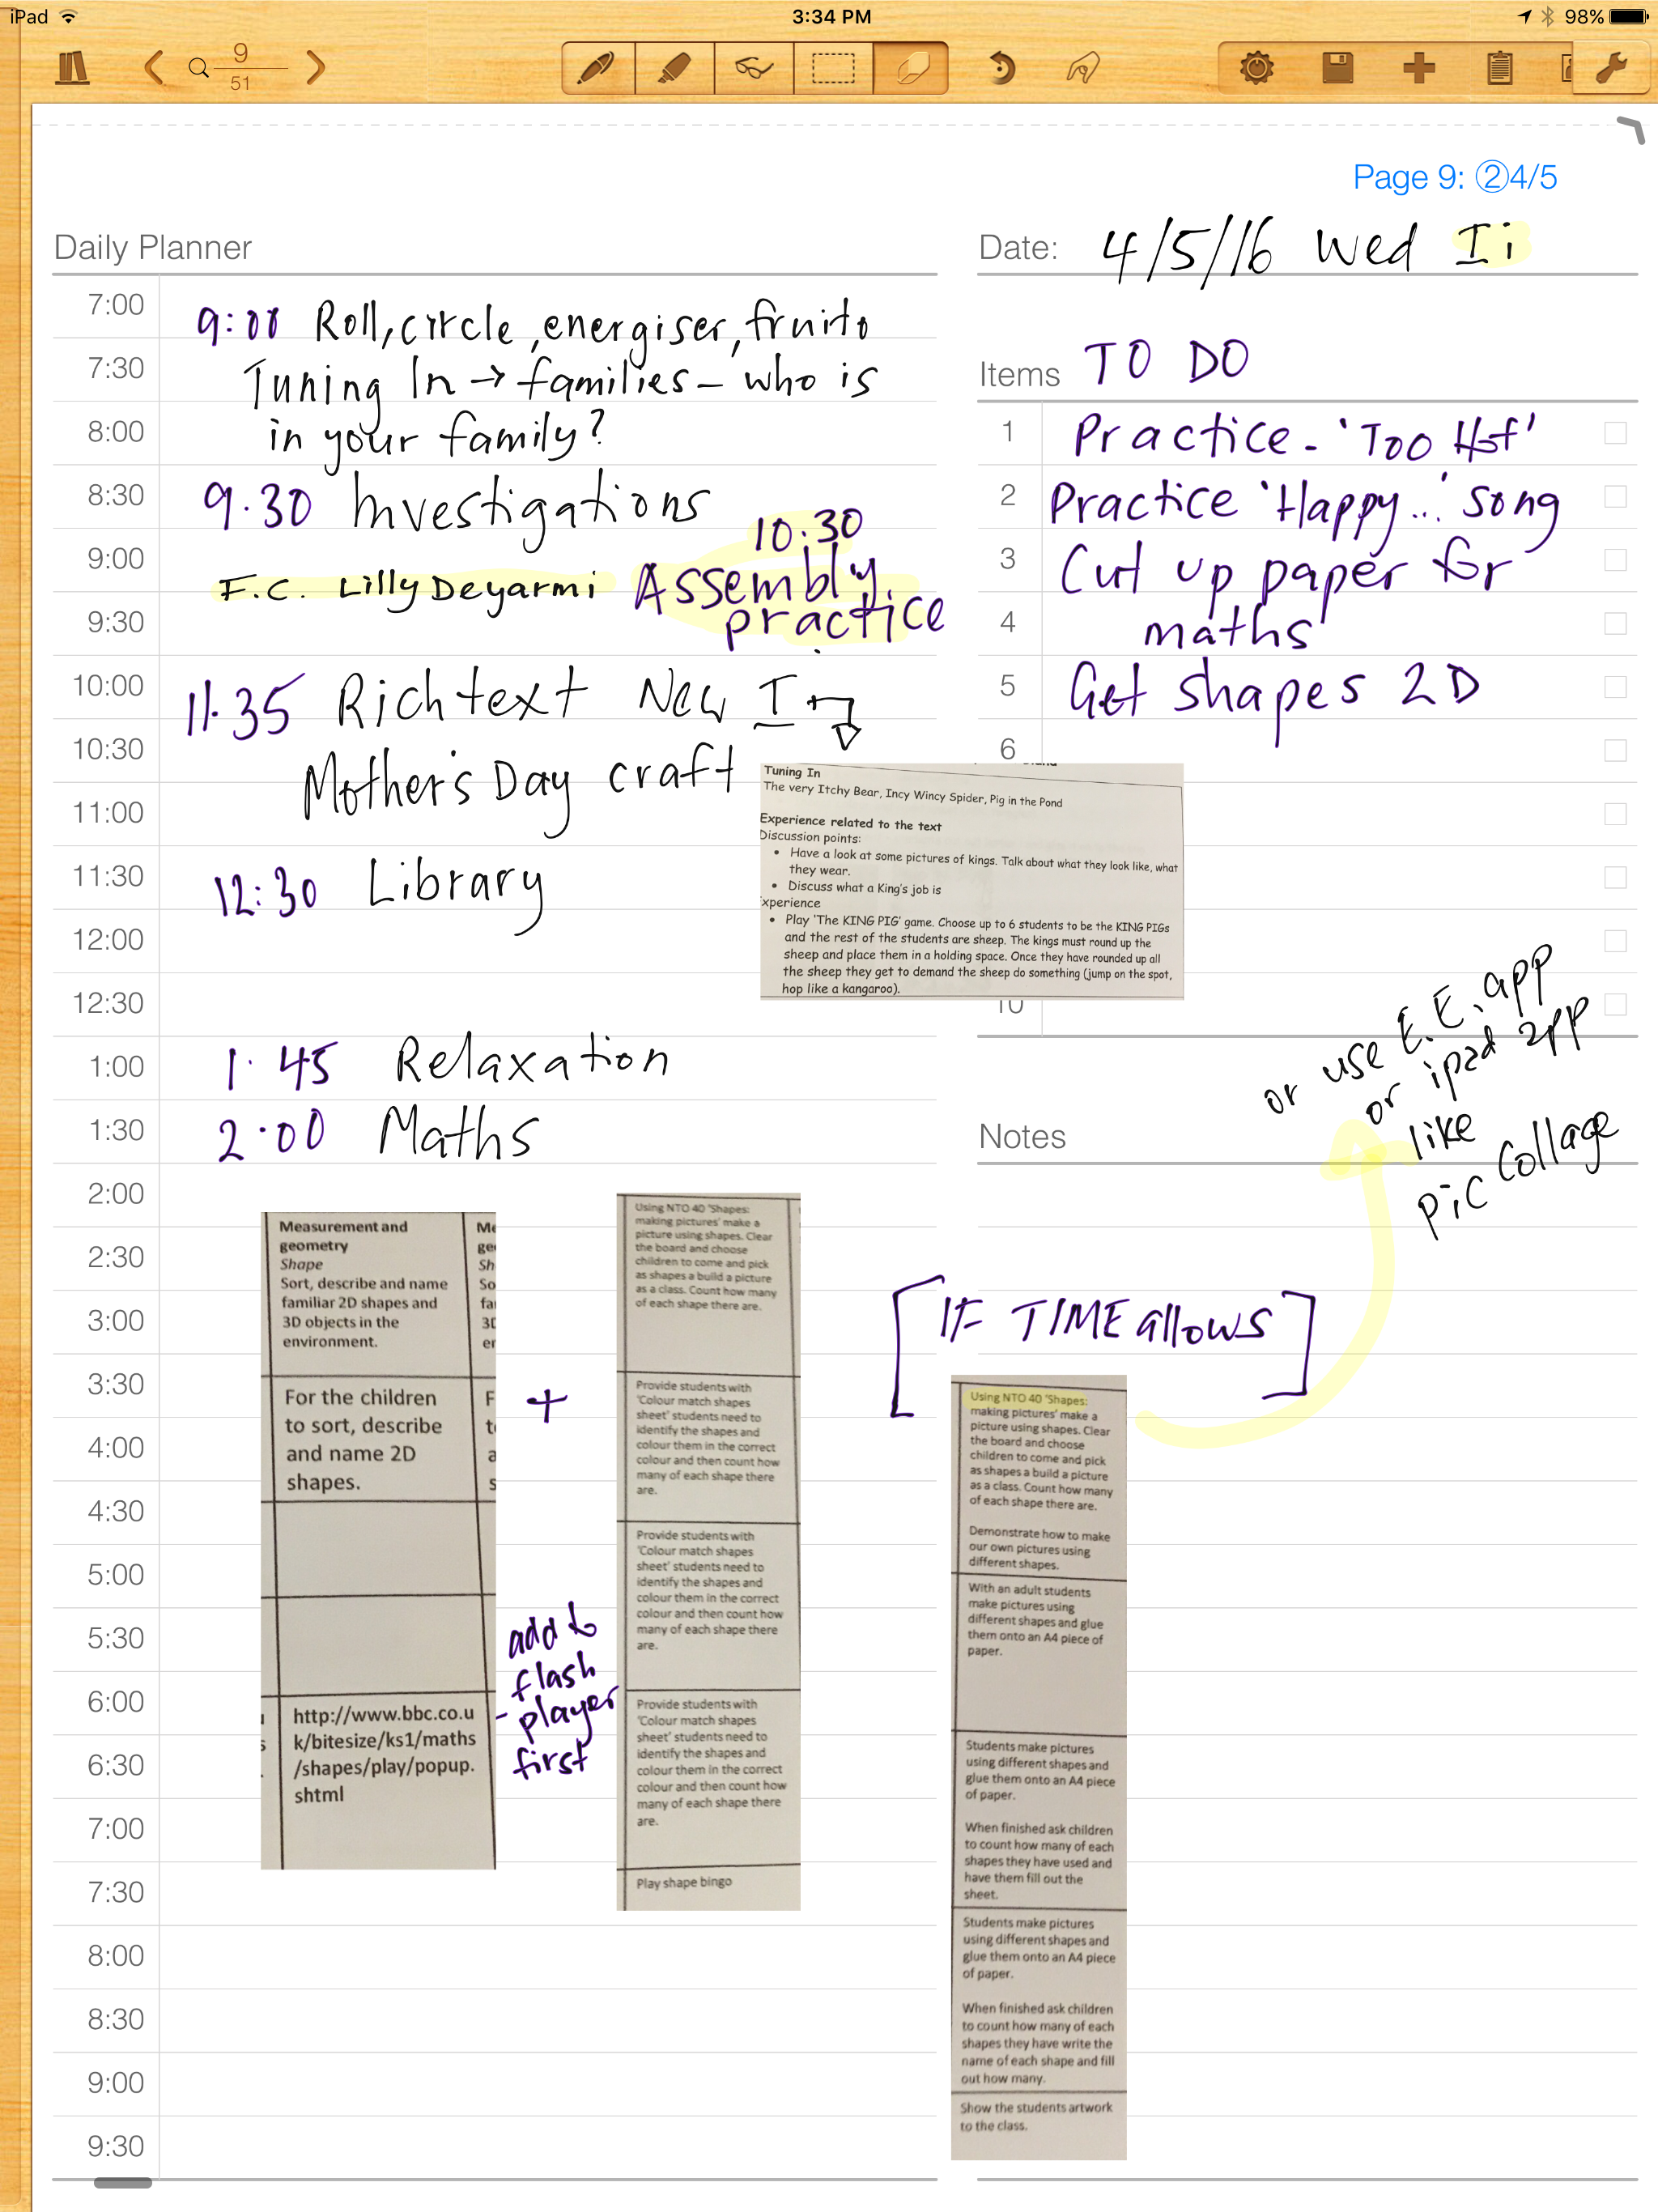 iPad
3:34 PM
98%
9
51
Page 9: ②4/5
Daily Planner
Date: 4/5/16 Wed Ii
7:00
7:30
8:00
8:30
9:00
9:30
10:00
10:30
11:00
11:30
12:00
12:30
1:00
1:30
2:00
2:30
3:00
3:30
4:00
4:30
5:00
5:30
6:00
6:30
7:00
7:30
8:00
8:30
9:00
9:30
9:00 Roll, circle, energiser, fruito
Tuning In → families – who is
in your family?
9.30 Investigations
F.C. Lilly Deyarmi
10:30
Assembly
practice
11.35 Rich text New I
Mother's Day craft
12:30 Library
1.45 Relaxation
2.00 Maths
Items TO DO
1 Practice - 'Too Hot'
2 Practice 'Happy...' song
3 Cut up paper for
4 maths
5 Get shapes 2D
6
10
Tuning In
The very Itchy Bear, Incy Wincy Spider, Pig in the Pond
Experience related to the text
Discussion points:
• Have a look at some pictures of kings. Talk about what they look like, what
they wear.
• Discuss what a King's job is
xperience
• Play 'The KING PIG' game. Choose up to 6 students to be the KING PIGs
and the rest of the students are sheep. The kings must round up the
sheep and place them in a holding space. Once they have rounded up all
the sheep they get to demand the sheep do something (jump on the spot,
hop like a kangaroo).
Notes
or use E.E. app
or ipad app
like
pic collage
[IF TIME allows]
Measurement and
geometry
Shape
Sort, describe and name
familiar 2D shapes and
3D objects in the
environment.
For the children
to sort, describe
and name 2D
shapes.
http://www.bbc.co.u
k/bitesize/ks1/maths
/shapes/play/popup.
shtml
+
add to
flash
- player
first
Using NTO 40 'Shapes:
making pictures' make a
picture using shapes. Clear
the board and choose
children to come and pick
as shapes a build a picture
as a class. Count how many
of each shape there are.
Provide students with
'Colour match shapes
sheet' students need to
identify the shapes and
colour them in the correct
colour and then count how
many of each shape there
are.
Provide students with
'Colour match shapes
sheet' students need to
identify the shapes and
colour them in the correct
colour and then count how
many of each shape there
are.
Provide students with
'Colour match shapes
sheet' students need to
identify the shapes and
colour them in the correct
colour and then count how
many of each shape there
are.
Play shape bingo
Using NTO 40 'Shapes:
making pictures' make a
picture using shapes. Clear
the board and choose
children to come and pick
as shapes a build a picture
as a class. Count how many
of each shape there are.
Demonstrate how to make
our own pictures using
different shapes.
With an adult students
make pictures using
different shapes and glue
them onto an A4 piece of
paper.
Students make pictures
using different shapes and
glue them onto an A4 piece
of paper.
When finished ask children
to count how many of each
shapes they have used and
have them fill out the
sheet.
Students make pictures
using different shapes and
glue them onto an A4 piece
of paper.
When finished ask children
to count how many of each
shapes they have write the
name of each shape and fill
out how many.
Show the students artwork
to the class.